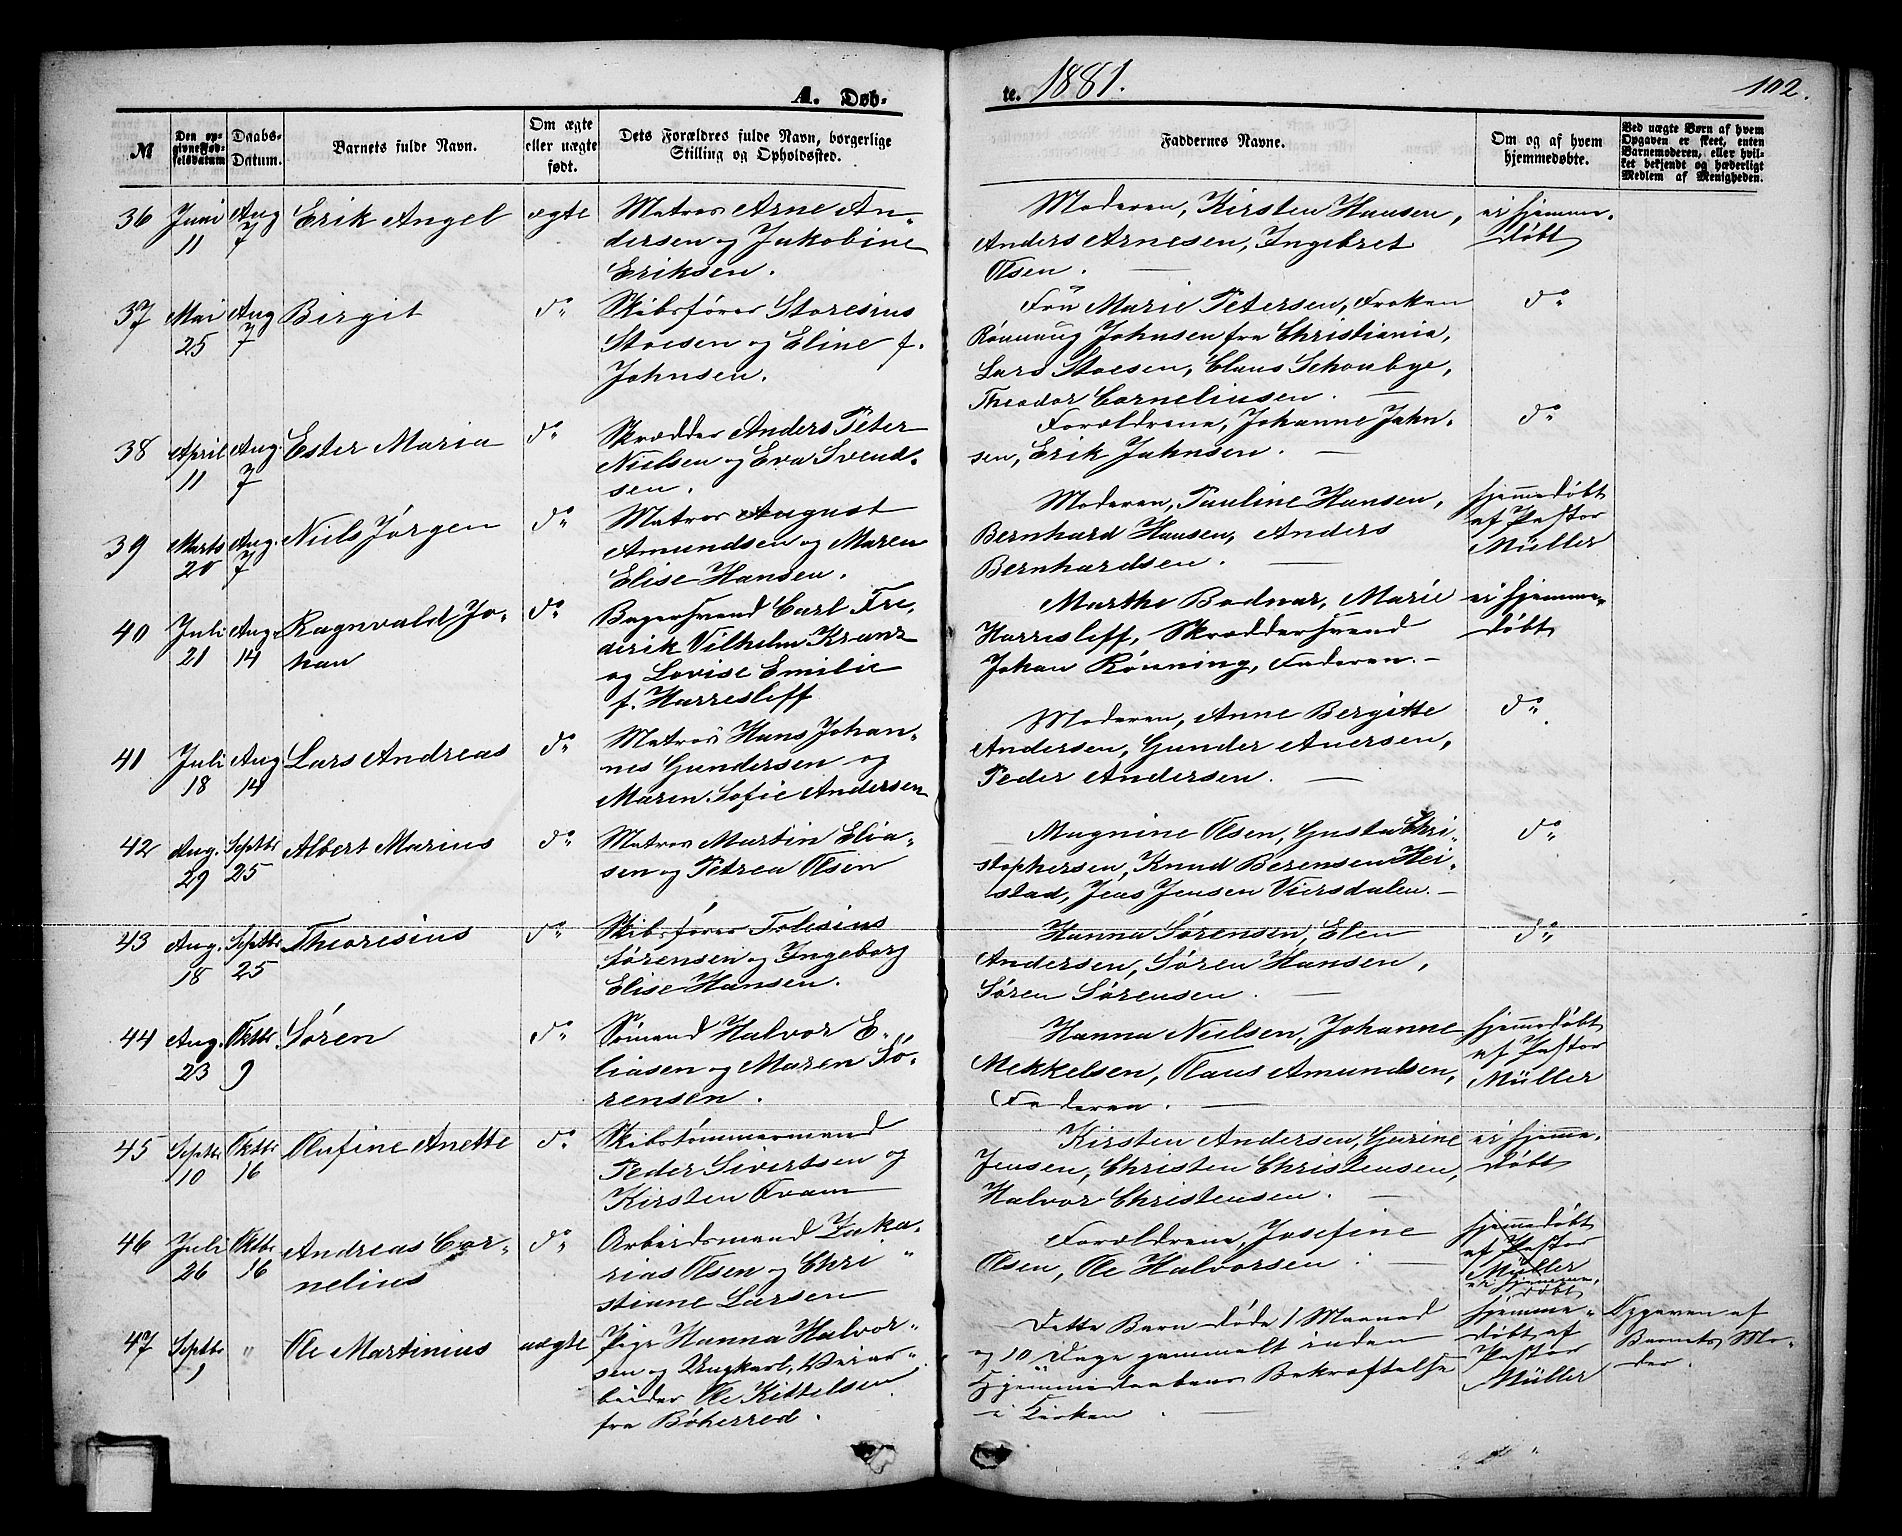 A. Døb-
te. 1881.
102.
№
Den op-
givne Fød-
selsdatum
Daabs-
Datum.
Barnets fulde Navn.
Om ægte
eller uægte
født.
Dets Forældres fulde Navn, borgerlige
Stilling og Opholdssted.
Faddernes Navne.
Om og af hvem
hjemmedøbte.
Ved uægte Børn af hvem
Opgaven er skeet, enten
Barnemoderen, eller hvil-
ket bekjendt og hæderligt
Medlem af Menigheden.
36 Juni 11 Aug 7 Erik Angel ægte
Matros Arne An-
dersen og Jakobine
Eriksen.
Moderen, Kirsten Hansen,
Anders Arnesen, Ingebret
Olsen. —
ei hjemme-
døbt
37 Mai 25 Aug 7 Birgit do
Skibsfører Storesius
Stoesen og Eline f.
Johnsen.
Fru Marie Petersen, Frøken
Rønnaug Johnsen fra Christiania,
Lars Stoesen, Claus Schoubye,
Theodor Corneliusen. —
do
38 April 11 Aug. 7 Ester Maria do
Skrædder Anders Peter
Nielsen og Eva Svend-
sen.
Forældrene, Johanne John-
sen, Erik Johnsen. —
do
39 Marts 20 Aug. 7 Niels Jørgen do
Matros August
Amundsen og Maren
Elise Hansen.
Moderen, Pauline Hansen,
Bernhard Hansen, Anders
Bernhardsen. —
hjemmedøbt
af Pastor
Müller
40 Juli 21 Aug. 14 Ragnvald Jo-
han do
Bagersvend Carl Fre-
derik Vilhelm Kranz
og Lovise Emilie
f. Harresleff
Marthe Bodvar, Marie
Harresleff, Skræddersvend
Johan Rönning, Faderen. —
ei hjemme-
døbt
41 Juli 18 Aug 14 Lars Andreas do
Matros Hans Johan-
nes Gundersen og
Maren Sofie Andersen
Moderen, Anne Bergitte
Andersen, Gunder Anersen,
Peder Andersen. —
do
42 Aug. 29 Septbr 25 Albert Marius do
Matros Martin Elia-
sen og Petrea Olsen
Magnine Olsen, Gusta Chri-
stophersen, Knud Berensen Hei-
stad, Jens Jensen Viersdalen. —
do
43 Aug. 18 Septbr 25 Theoresius do
Skibsfører Tolesius
Sørensen og Ingeborg
Elise Hansen.
Hanna Sørensen, Elen
Andersen, Søren Hansen,
Søren Sørensen. —
do
44 Aug. 23 Oktbr 9 Søren do
Sømand Halvor E-
liasen og Maren Sø-
rensen.
Hanna Nielsen, Johanne
Mekkelsen, Olaus Amundsen,
Faderen. —
hjemmedøbt
af Pastor
Müller
45 Septbr 10 Oktbr 16 Olufine Anette do
Skibstømmermand
Peder Sivertsen og
Kirsten Tvam
Kirsten Andersen, Gurine
Jensen, Christen Christensen,
Halvor Christensen. —
ei hjemme-
døbt
46 Juli 26 Oktbr 16 Andreas Cor-
nelius do
Arbeidsmand Zaka-
rias Olsen og Chri-
stiane Larsen
Forældrene, Josefine
Olsen, Ole Halvorsen. —
hjemmedøbt
af Pastor
Müller
ei hjemme-
døbt
47 Septbr 1 " Ole Martinius uægte
Pige Hanna Halvor-
sen og Ungkarl, Veiar-
beider Ole Kittelsen
fra Bøherred.
Dette Barn døde 1 Maaned
og 10 Dage gammelt inden
Hjemmedaabens Bekræftelse
i Kirken. —
hjemme-
døbt af
Pastor
Müller
Opgaven af
Barnets Mo-
der.